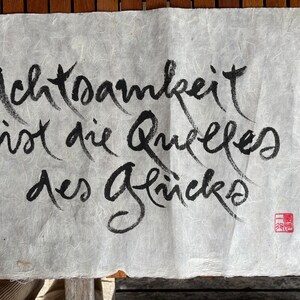 Achtsamkeit
ist die Quelles
des Glücks